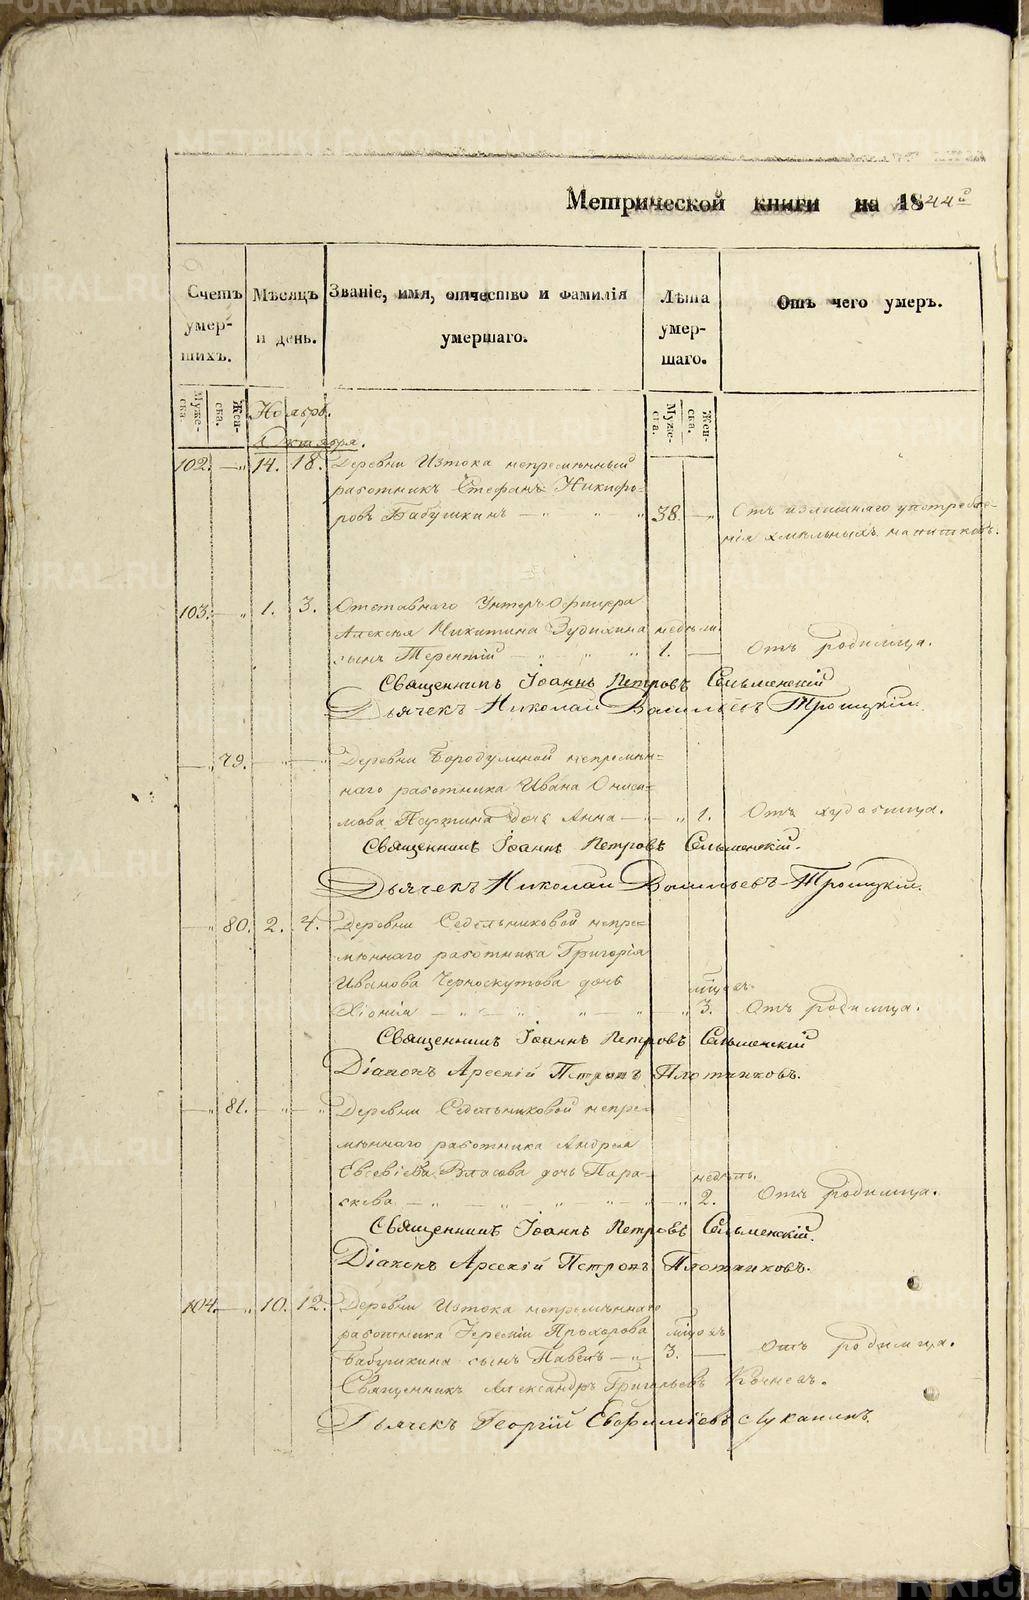 METRIKI.GASO-URAL.RU
Метрической книги на 1844й
Счетъ умер-шихъ.
Мѣсяцъ и день.
Званіе, имя, отчество и фамилія умершаго.
Лѣта умер-шаго.
Отъ чего умеръ.
Муже-ска.
Жен-ска.
Муже-ска.
Жен-ска.
Ноябрь.
Октября.
102. — „ 14. 18. Деревни Изтока непремѣнный
работникъ Стефанъ Никифо-
ровъ Бабушкинъ — „ „ „ 38 — „ Отъ излишняго употребле-
нія хмельныхъ напитковъ.
103. — „ 1. 3. Отставнаго Унтеръ Офицера
Алексѣя Никитина Зудихина недѣли.
сынъ Терентій — „ — „ „ 1. — Отъ родимца.
Священникъ Іоаннъ Петровъ Сельменскій
Дьячекъ Николай Васильевъ Троицкій.
— „ 79. — „ — „ Деревни Бородулиной непремѣн-
наго работника Ивана Ониси-
мова Пертина дочь Анна — „ — „ 1. Отъ худобища.
Священникъ Іоаннъ Петровъ Сельменскій.
Дьячекъ Николай Васильевъ Троицкій.
— „ 80. 2. 4. Деревни Седельниковой непре-
мѣннаго работника Григорія
Иванова Черноскутова дочь мѣсяц.
Хіонія — „ — „ „ — „ 3. Отъ родимца.
Священникъ Іоаннъ Петровъ Сельменскій
Діаконъ Арсеній Петровъ Плотниковъ.
— „ 81. — „ — „ Деревни Седельниковой непре-
мѣннаго работника Андрея
Евсевіева Власова дочь Пара- недѣль.
скева — „ — „ „ „ — „ 2. Отъ родимца.
Священникъ Іоаннъ Петровъ Сельменскій.
Діаконъ Арсеній Петровъ Плотниковъ.
104. — „ 10. 12. Деревни Изтока непремѣннаго
работника Іереміи Прохорова мѣсяцъ
Бабушкина сынъ Павелъ — „ 3. — Отъ родимца.
Священникъ Александръ Григорьевъ
Дьячекъ Георгій Евфиміевъ Луканинъ.